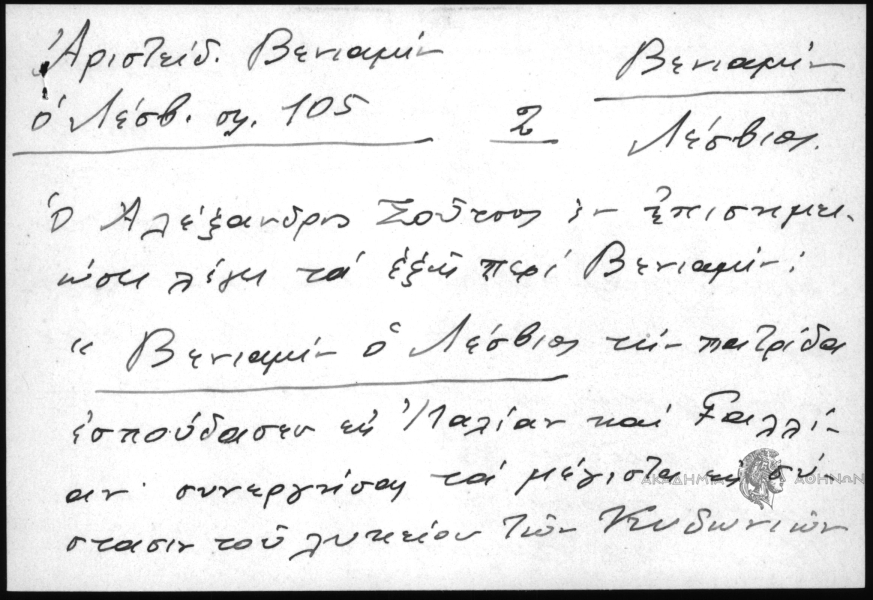 Ἀριστείδ. Βενιαμὶν
ὁ Λέσβ. σ. 105
2
Βενιαμὶν
Λέσβιος.
Ὁ Ἀλέξανδρος Σοῦτσος ἐν ἐπισημει-
ώσει λέγει τὰ ἑξῆς περὶ Βενιαμὶν:
“ Βενιαμὶν ὁ Λέσβιος τὴν πατρίδα
ἐσπούδασεν εἰς Ἰταλίαν καὶ Γαλλί-
αν· συνεργήσας τὰ μέγιστα εἰς σύ-
στασιν τοῦ λυκείου τῶν Κυδωνιῶν
ΑΚΑΔΗΜΙΑ ΑΘΗΝΩΝ